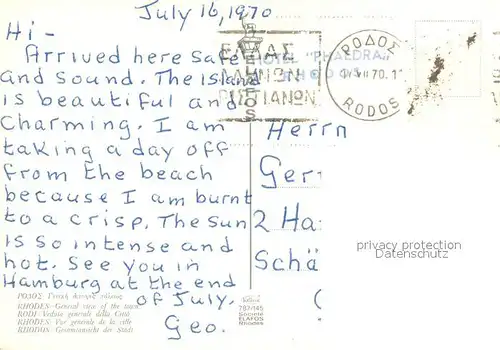 July 16, 1970
Hi -
Arrived here safe
and sound. The Island
is beautiful and
charming. I am
taking a day off
from the beach
because I am burnt
to a crisp. The sun
is so intense and
hot. See you in
Hamburg at the end
of July.
Geo.
HOTEL "PHAEDRA"
ΡΟΔΟΣ
70.1
RODOS
Herrn
Ger
2 Ha
Schä
privacy protection
Datenschutz
ΡΟΔΟΣ
RHODES - General view of the town
RODI - Veduta generale della Città
RHODES - Vue générale de la ville
RHODOS - Gesamtansicht der Stadt
787/145
Société
ELAFOS
Rhodes